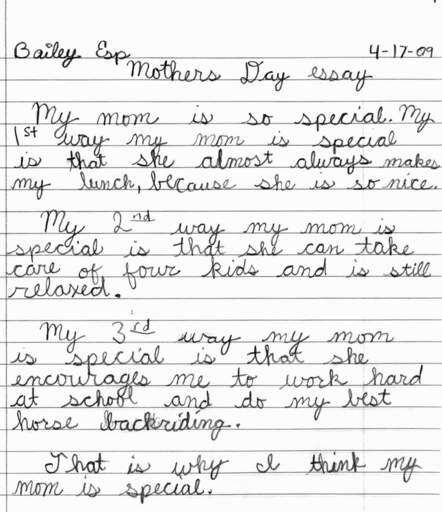 Bailey Esp 4-17-09
Mothers Day essay
My mom is so special. My
1st way my mom is special
is that she almost always makes
my lunch, because she is so nice.
My 2nd way my mom is
special is that she can take
care of four kids and is still
relaxed.
My 3rd way my mom
is special is that she
encourages me to work hard
at school and do my best
horse backriding.
That is why I think my
mom is special.